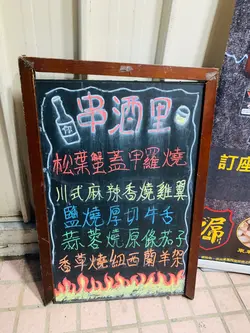 串酒里
松葉蟹蓋甲羅燒
川式麻辣香燒雞翼
鹽燒厚切牛舌
蒜蓉燒原條茄子
香草燒紐西蘭羊架
訂座